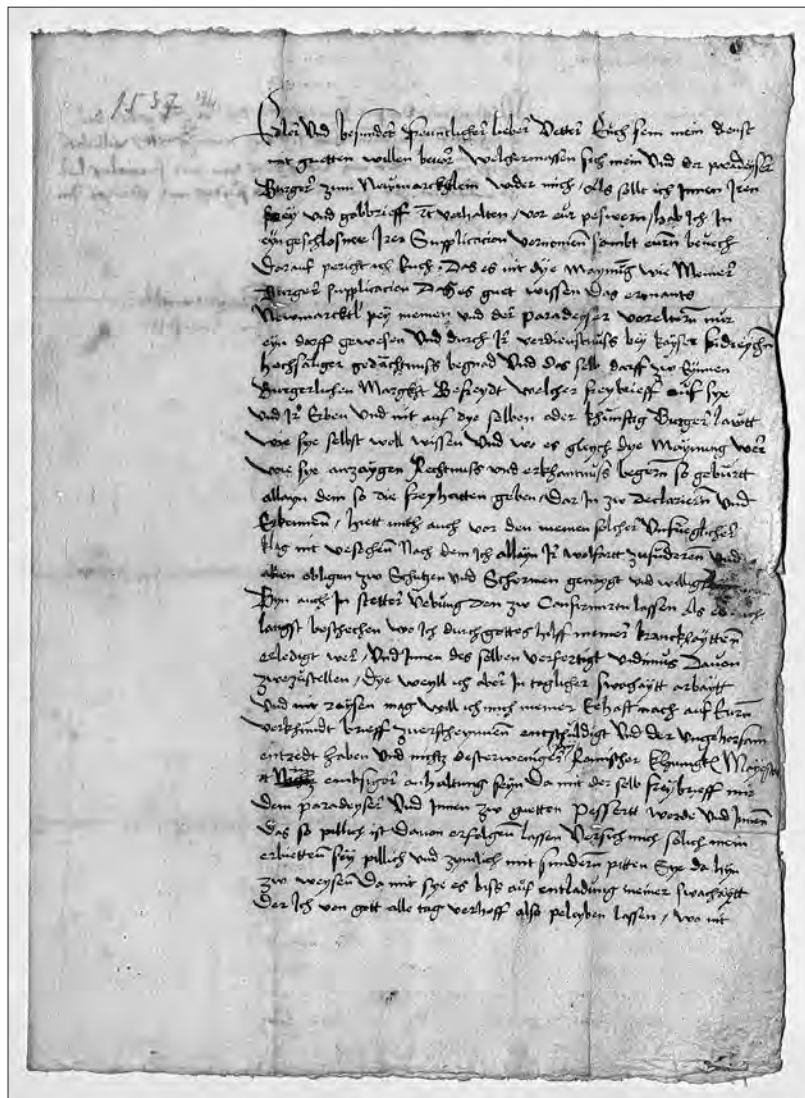 1537
Edler Und besunder freuntlicher lieber Vetter Euch sein mein dienst
mit guetten willen bevor Welhermassen sich mein Und der paradeyser
Burger zum Neymarcktlein wider mich, Als sollt ich Innen Iren
frey und gabbrieff vorhalten, vor eur peswern, hab Ich In
eyngeschlosner Irer Supplicacion vernomen sambt eurn bevech
Darauf pericht ich Euch, Das es nit dye Maynung wie Meiner
Burger Supplicacion Das es guet wissen Das ermants
Newmarcktl pey meinen und der paradeyser voreltern nur
eyn dorff gewesen Und durch Ir verdienstnuss bey kayser fridreychen
hochsäliger gedächtnuss begnad Und das selb dorff zw Eynnen
Burgerlichen Margkht Befreydt welher freybrieff auf sye
und Ir Erben Und nit auf dye selben oder khunfftig Burger lawtt
wie sye selbst woll wissen Und wo es gleych dye Maynung wer
wie sye anzaygen Rechtnuss und erkhantnuss begern so geburtt
allayn dem so die freyhatten geben, dar In zw Declariern Und
Erkennen, hiett mich auch vor den meinen solcher Unfueglicher
klag nit versechen Nach dem Ich allayn Ir wolfartt zufuderen Und
allen obligen zw Schutzen Und Schermen genaygt Und willig
Byn auch In stetter Uebung den zw Confirmirn lassen Als es auch
langst beschechen wo Ich durch gottes hilff meiner kranckhaytten
erledigt wer, Und Innen des selben verfertigt vidimus Davon
zwezustellen, Dye weyll ich aber In taglicher swachaytt arbaytt
Und nit raysen mag will ich mich meiner Ehaft nach auf Eurn
verkhundt brieff zuerscheynnen entschuldigt Und der Ungehorsam
entredt haben Und nichtz desterweniger Ramischer khunigkl Mayestat
embsiger anhaltung seyn Da mit der selb freybrieff mir
dem paradeyser Und Innen zw guetten Pessertt werde Und Innen
Das so pillich ist Dauon erfolgen lassen Versich mich solich mein
erbietten sey pillich und zymlich mit sundern pitten Sye da hyn
zw weysen Da mit sye es biss auf entladung meiner swachaytt
Der Ich von gott alle tag verhoff also peleyben lassen, wo nit